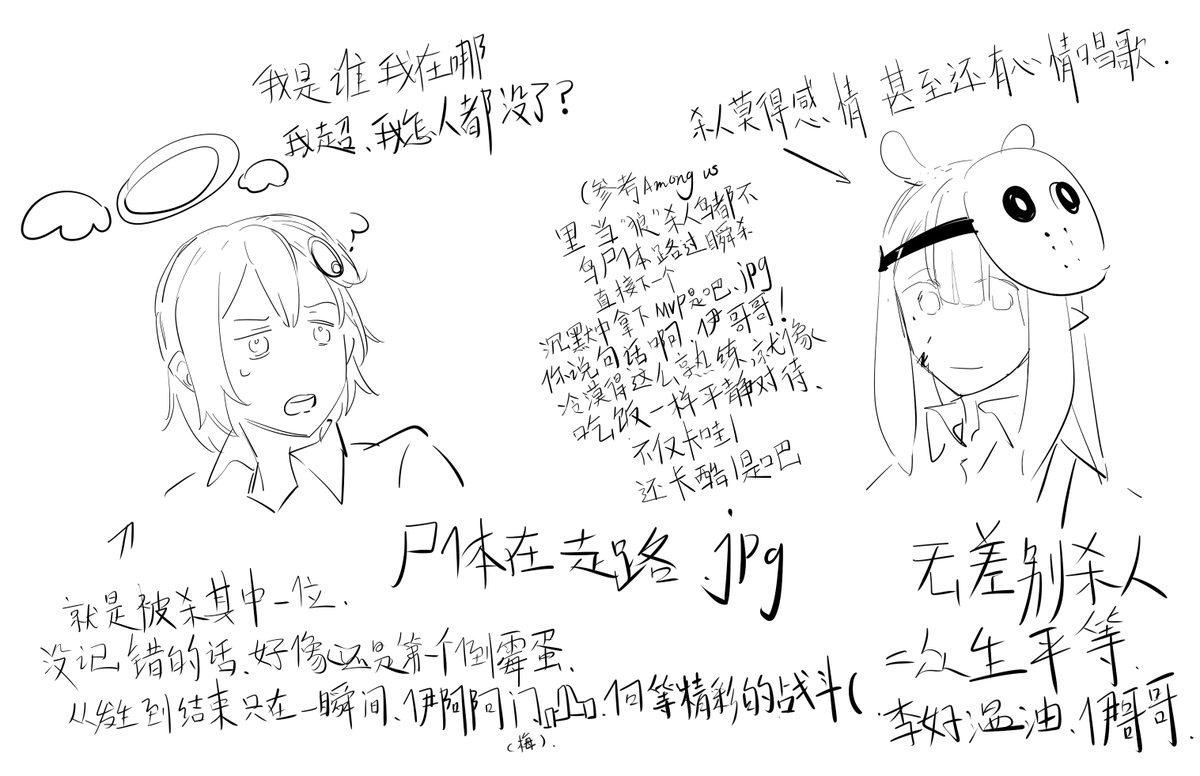 我是谁 我在哪
我超、我怎人都没了?
?
杀人莫得感情 甚至还有心情唱歌.
(参考Among us
里 当"狼"杀人鸟都不
鸟尸体路过瞬杀
直接下个
沉默中拿下MVP是吧.jpg
你说句话啊 伊哥哥!
冷漠得这么熟练,就像
吃饭一样平静对待、
不仅卡哇I
还卡酷I是吧
尸体在走路.jpg
就是被杀其中一位.
没记错的话、好像还是第一个倒霉蛋、
从发生到结束只在一瞬间、伊阿阿门 何等精彩的战斗(
(梅).
无差别杀人
众生平等.
李好温油、伊哥哥.